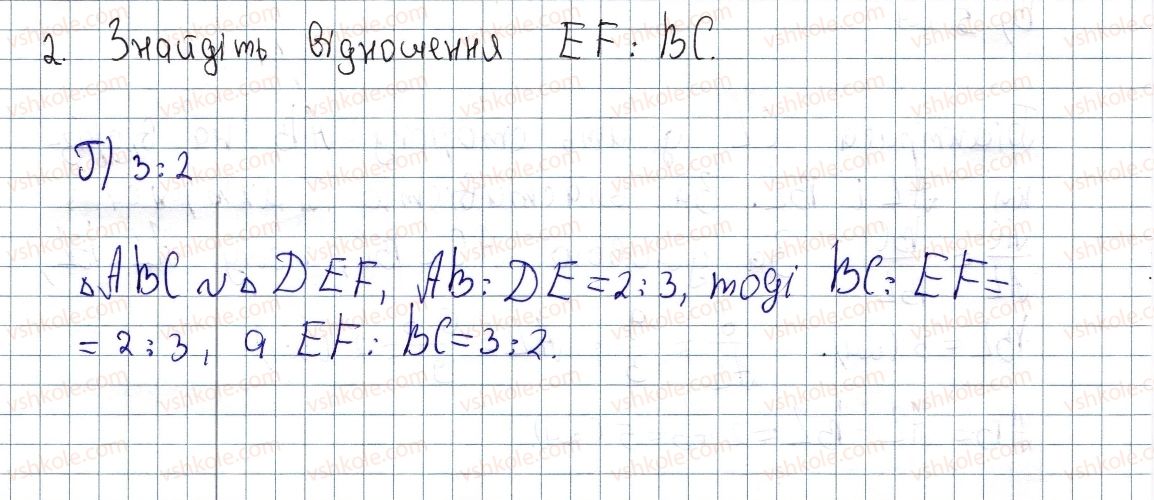 2. Знайдіть відношення EF : BC.
Г) 3 : 2
△ABC ~ △DEF, AB : DE = 2 : 3, тоді BC : EF =
= 2 : 3, а EF : BC = 3 : 2.